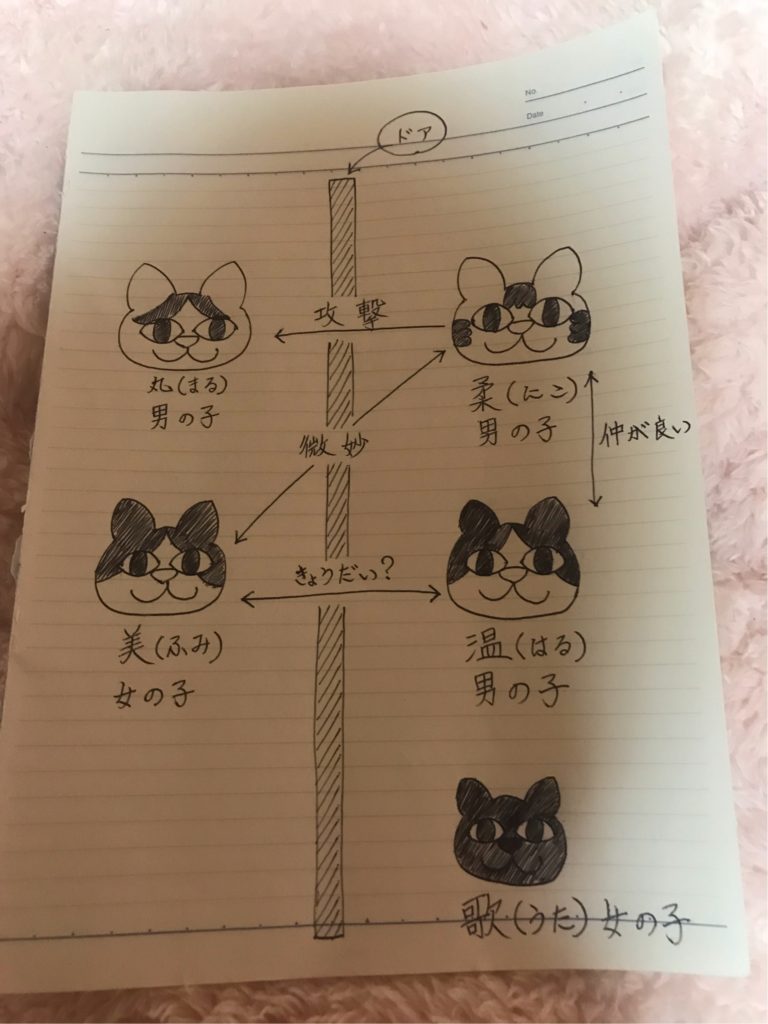 No.
Date
ドア
攻撃
丸(まる)
男の子
柔(にこ)
男の子
仲が良い
微妙
きょうだい?
美(ふみ)
女の子
温(はる)
男の子
歌(うた)女の子